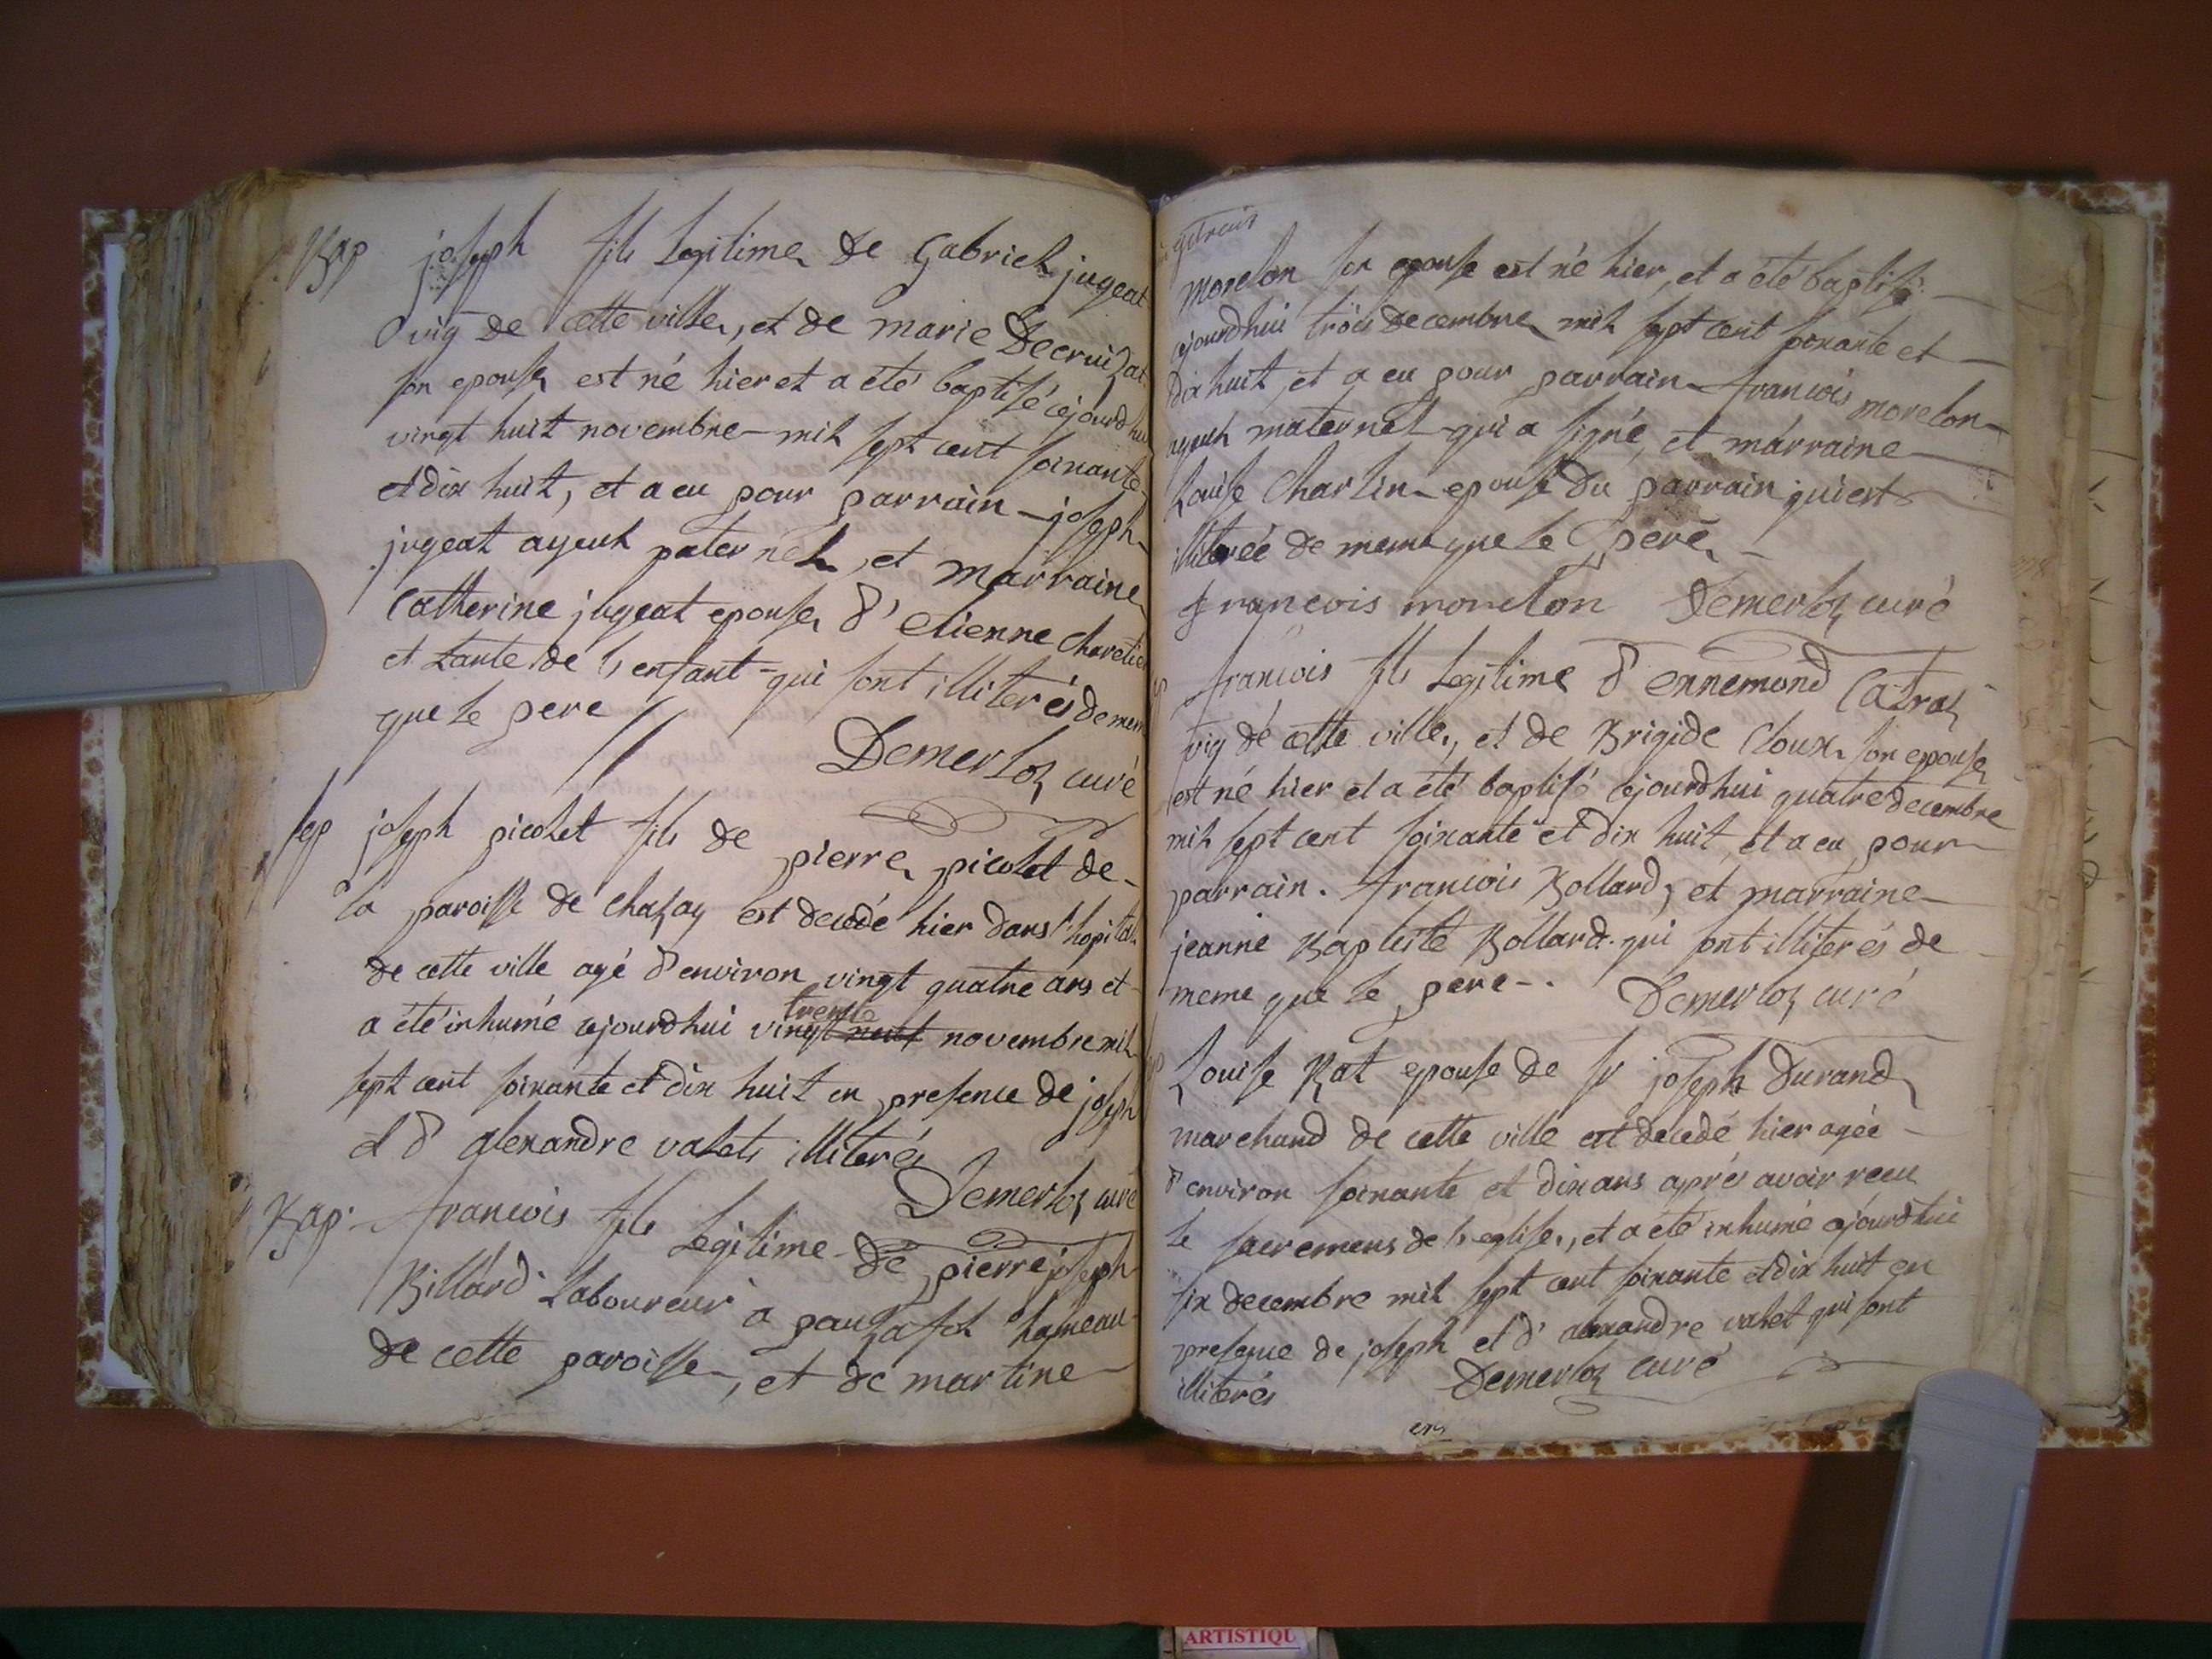 Bap joseph fils legitime de Gabriel jugeat
vig de cette ville, et de marie Decruizat
son epouse est né hier et a été baptisé cejourdhui
vingt huit novembre mil sept cent soixante
et dix huit, et a eu pour parrain joseph
jugeat ayeul paternel, et marraine
Catherine jugeat epouse d'etienne Charetier
et tante de l'enfant qui sont illiterés de meme
que le pere
Demerloz curé
sep joseph picolet fils de pierre picolet de
la paroisse de chazay est decedé hier dans l'hopital
de cette ville agé d'environ vingt quatre ans et
trente
a été inhumé cejourdhui vingt neuf novembre mil
sept cent soixante et dix huit en presence de joseph
et d'alexandre valets illiterés
Demerloz curé
Bap. francois fils legitime de pierre joseph
Billard laboureur a hameau
de cette paroisse, et de martine
morelon son epouse est né hier, et a été baptisé
cejourdhui trois decembre mil sept cent soixante et
dix huit, et a eu pour parrain francois morelon
ayeul maternel qui a signé, et marraine
Louise Charlin epouse du parrain qui est
illiterée de meme que le pere
francois morelon Demerloz curé
francois fils legitime d'ennemond Catraz
vig de cette ville, et de Brigide Cloux son epouse
est né hier et a été baptisé cejourdhui quatre decembre
mil sept cent soixante et dix huit, et a eu pour
parrain francois Bollard, et marraine
jeanne Baptiste Bollard qui sont illiterés de
meme que le pere.
Demerloz curé
Louise Rat epouse de sr joseph Durand
marchand de cette ville est decedé hier agée
d'environ soixante et dix ans aprés avoir recu
le sacremens de l'eglise, et a été inhumé cejourdhui
six decembre mil sept cent soixante et dix huit en
presence de joseph et d'alexandre valet qui sont
illiterés Demerloz curé
ARTISTIQU